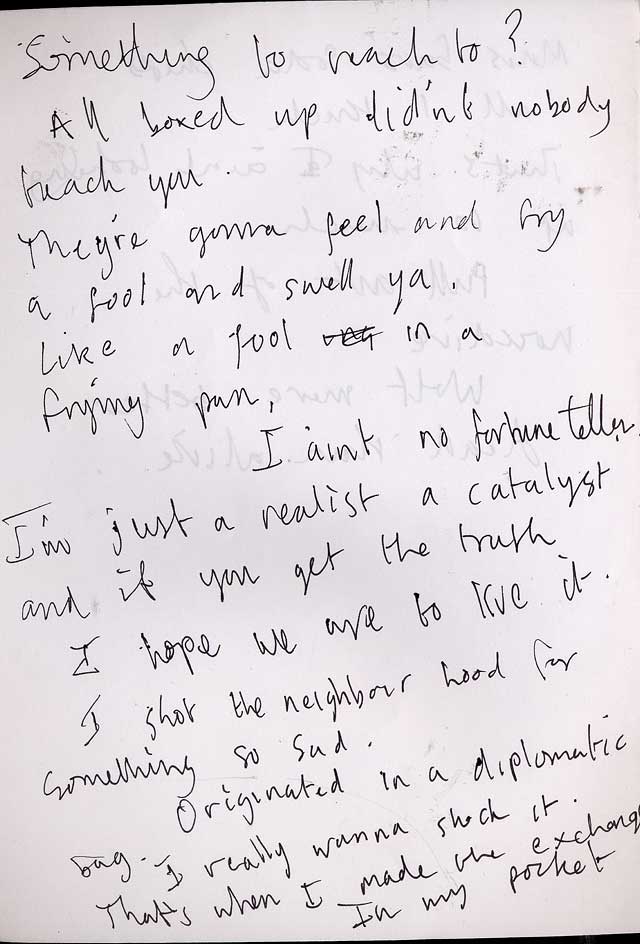 Something to reach to?
All boxed up didn't nobody
teach you.
They're gonna feel and fry
a fool and swell ya.
Like a fool in a
frying pan,
I aint no fortune teller.
I'm just a realist a catalyst
and if you get the truth
I hope we are to live it.
I shot the neighbour hood for
something so sad.
Originated in a diplomatic
bag. I really wanna it.
That's when I made the exchange
In my pocket